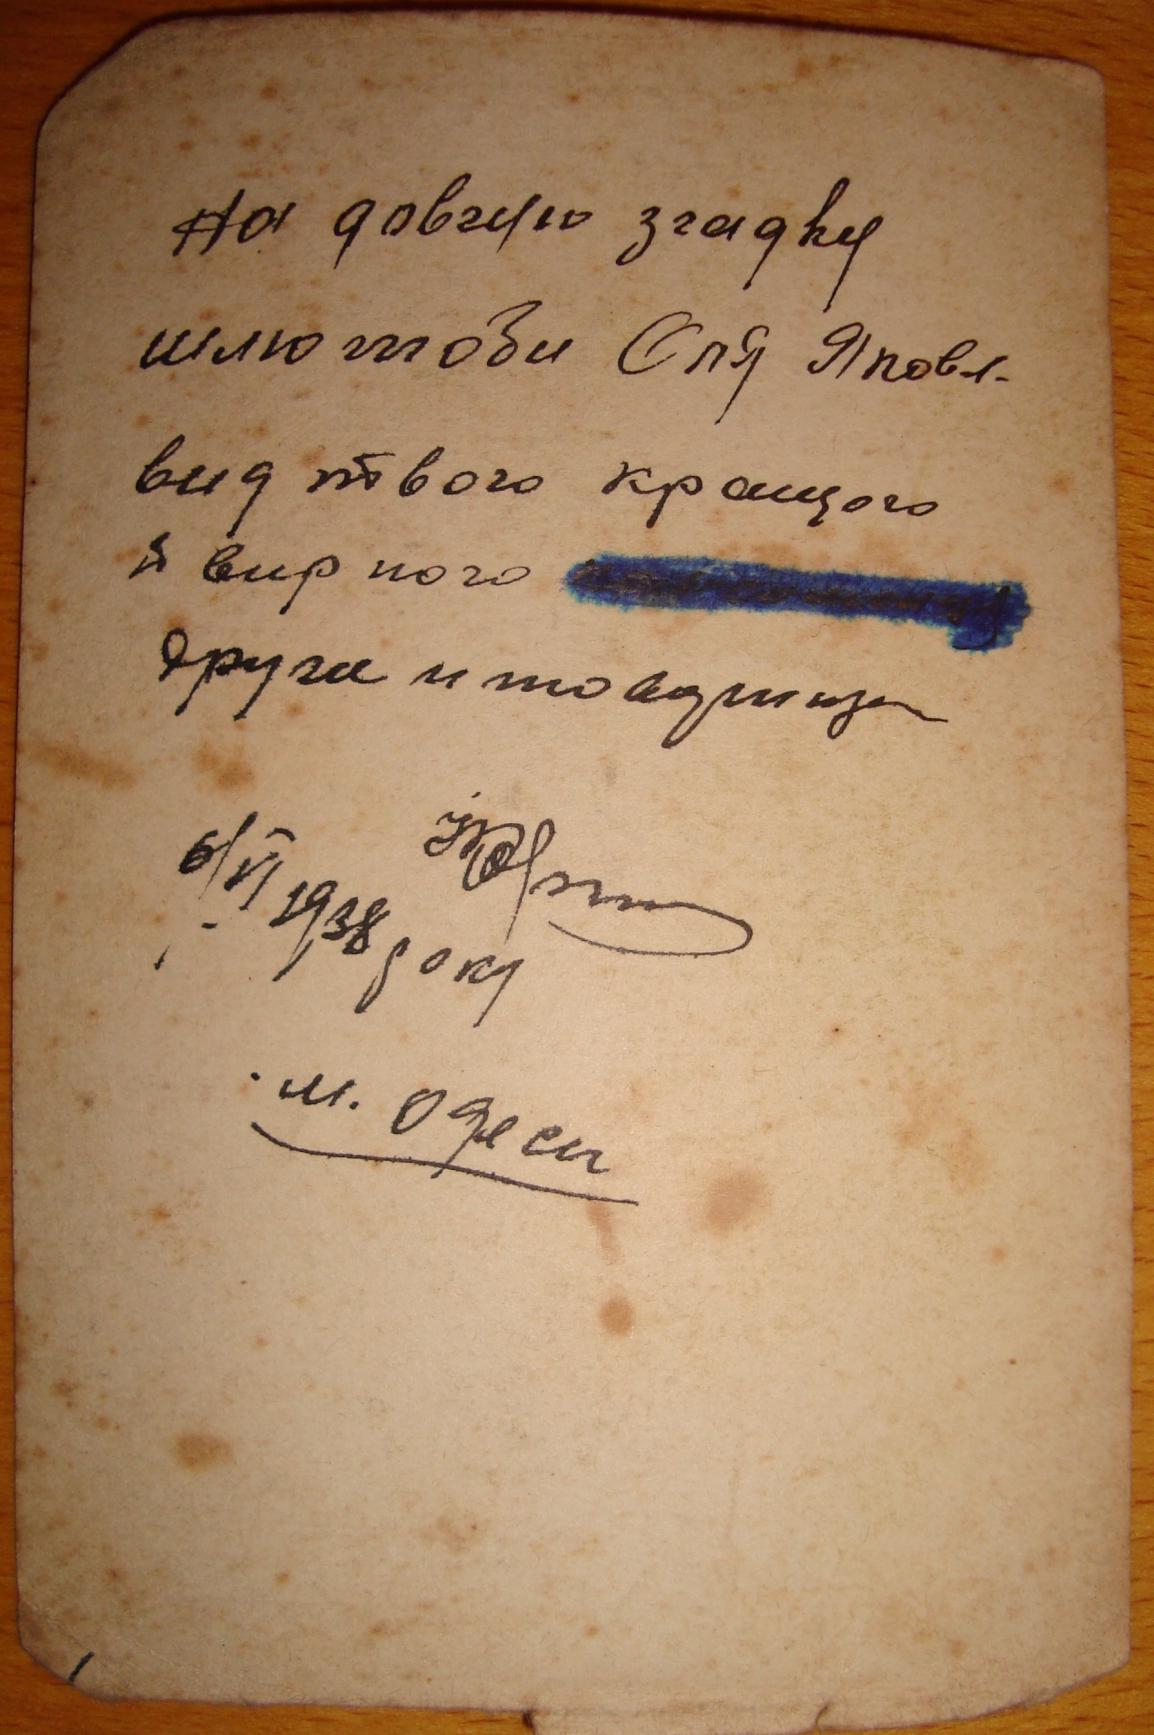 На довгую згадку
шлю тоби Оля Яковл.
вид твого кращого
й вирного
друга и товарища
6/VI 1938 року
м. Одеси